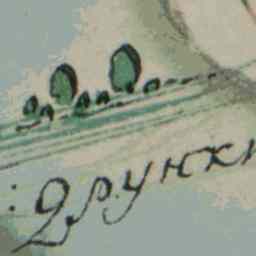 : Друнки